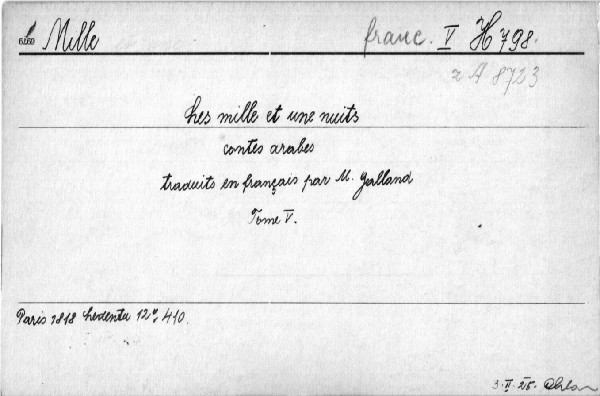 Mille franc. V H 798.
z A 8723
Les mille et une nuits
contes arabes
traduits en français par M. Galland
Tome V.
Paris 1818 Ledentu 12°, 410.
3. II. 25.